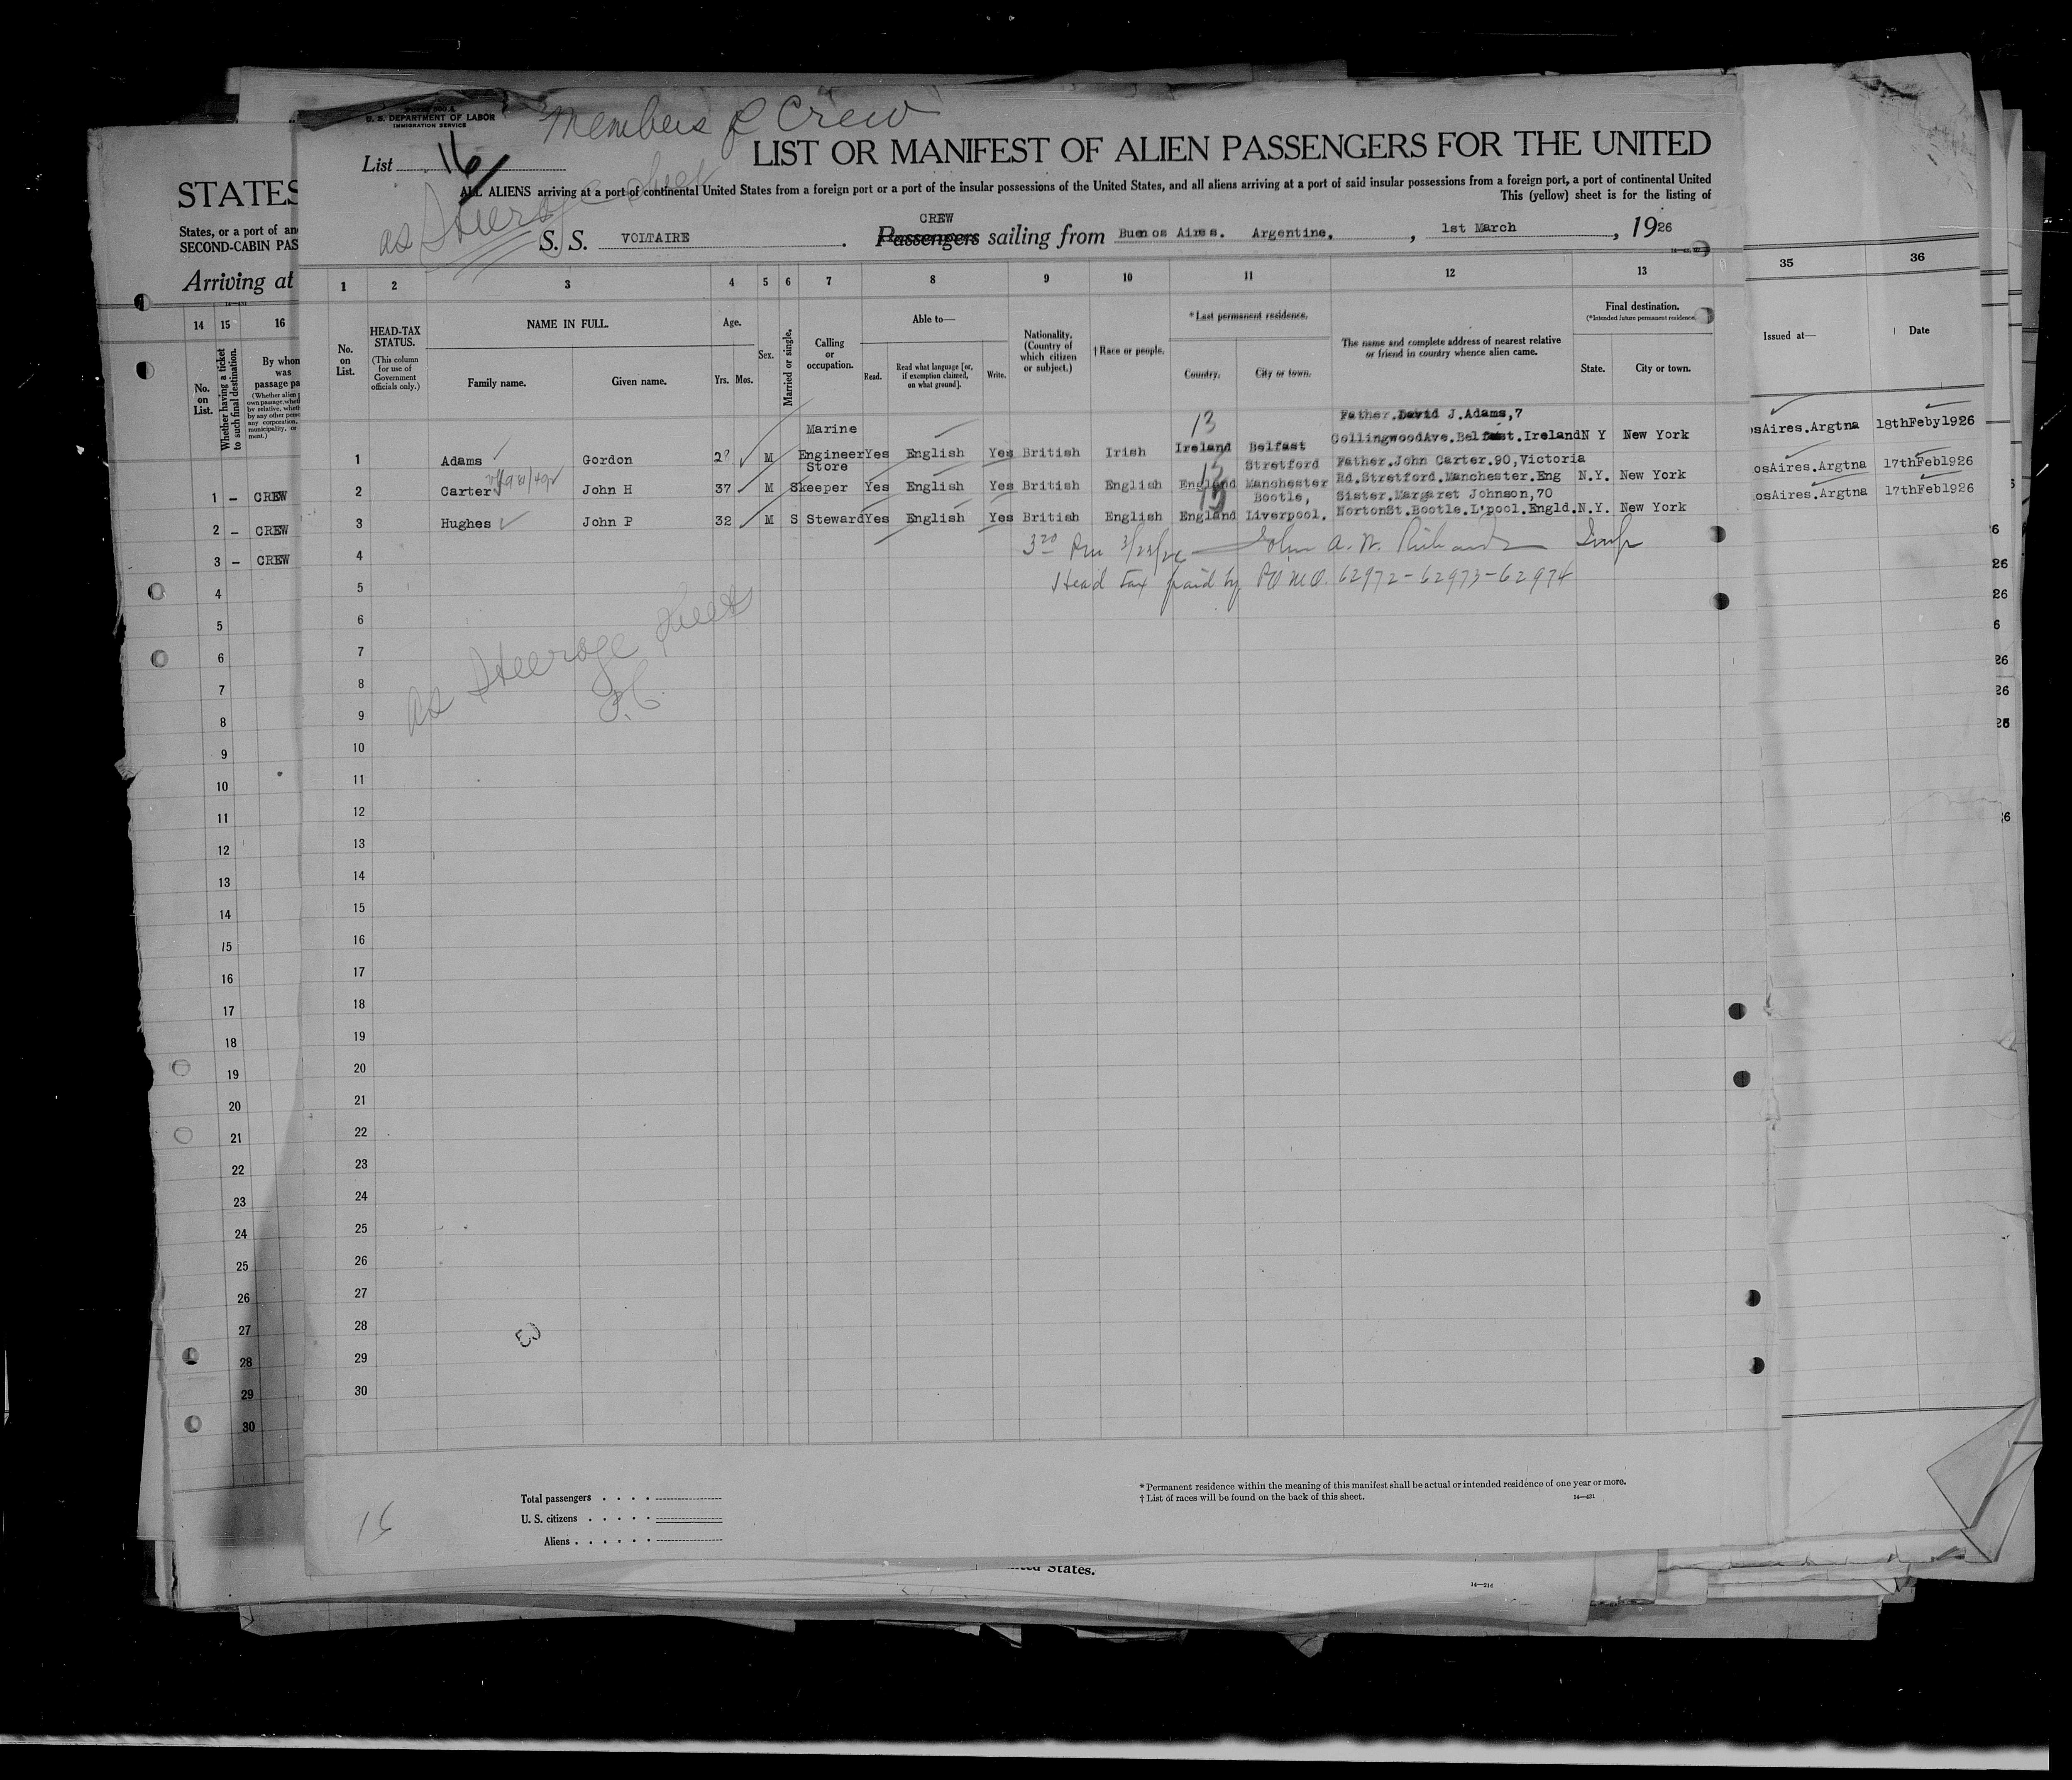 Members of Crew
U. S. DEPARTMENT OF LABOR
IMMIGRATION SERVICE
List 16
LIST OR MANIFEST OF ALIEN PASSENGERS FOR THE UNITED
ALL ALIENS arriving at a port of continental United States from a foreign port or a port of the insular possessions of the United States, and all aliens arriving at a port of said insular possessions from a foreign port, a port of continental United
This (yellow) sheet is for the listing of
as Steerage sheet
CREW
S. S. VOLTAIRE. Passengers sailing from Buenos Aires. Argentine. , 1st March , 1926
STATES
States, or a port of an
SECOND-CABIN PAS
Arriving at
1 2 3 4 5 6 7 8 9 10 11 12 13
No. on List.
HEAD-TAX STATUS.
(This column for use of Government officials only.)
NAME IN FULL.
Family name. Given name.
Age.
Yrs. Mos.
Sex.
Married or single.
Calling or occupation.
Able to—
Read. Read what language [or, if exemption claimed, on what ground]. Write.
Nationality. (Country of which citizen or subject.)
† Race or people.
* Last permanent residence.
Country. City or town.
The name and complete address of nearest relative or friend in country whence alien came.
Final destination.
(*Intended future permanent residence.)
State. City or town.
14 15 16
No. on List.
Whether having a ticket to such final destination.
By whom was passage pa
35 36
Issued at— Date
13
Father.David J.Adams,7
1 Adams Gordon M Marine Engineer Yes English Yes British Irish Ireland Belfast CollingwoodAve.Belfast.Ireland N Y New York
2 Carter John H 37 M Store Skeeper Yes English Yes British English England Stretford Manchester Father.John Carter.90,Victoria Rd.Stretford.Manchester.Eng N.Y. New York
3 Hughes John P 32 M S Steward Yes English Yes British English England Bootle, Liverpool. Sister.Margaret Johnson,70 NortonSt.Bootle.L'pool.Engld. N.Y. New York
osAires.Argtna 18thFeby1926
osAires.Argtna 17thFeb1926
osAires.Argtna 17thFeb1926
1 - CREW
2 - CREW
3 - CREW
3/23/26 John A. W. Richards Insp
Head tax paid by PO MO. 62972-62973-62974
as Steerage sheet
4
5
6
7
8
9
10
11
12
13
14
15
16
17
18
19
20
21
22
23
24
25
26
27
28
29
30
16
Total passengers
U. S. citizens
Aliens
* Permanent residence within the meaning of this manifest shall be actual or intended residence of one year or more.
† List of races will be found on the back of this sheet.
14—431
States.
14—214